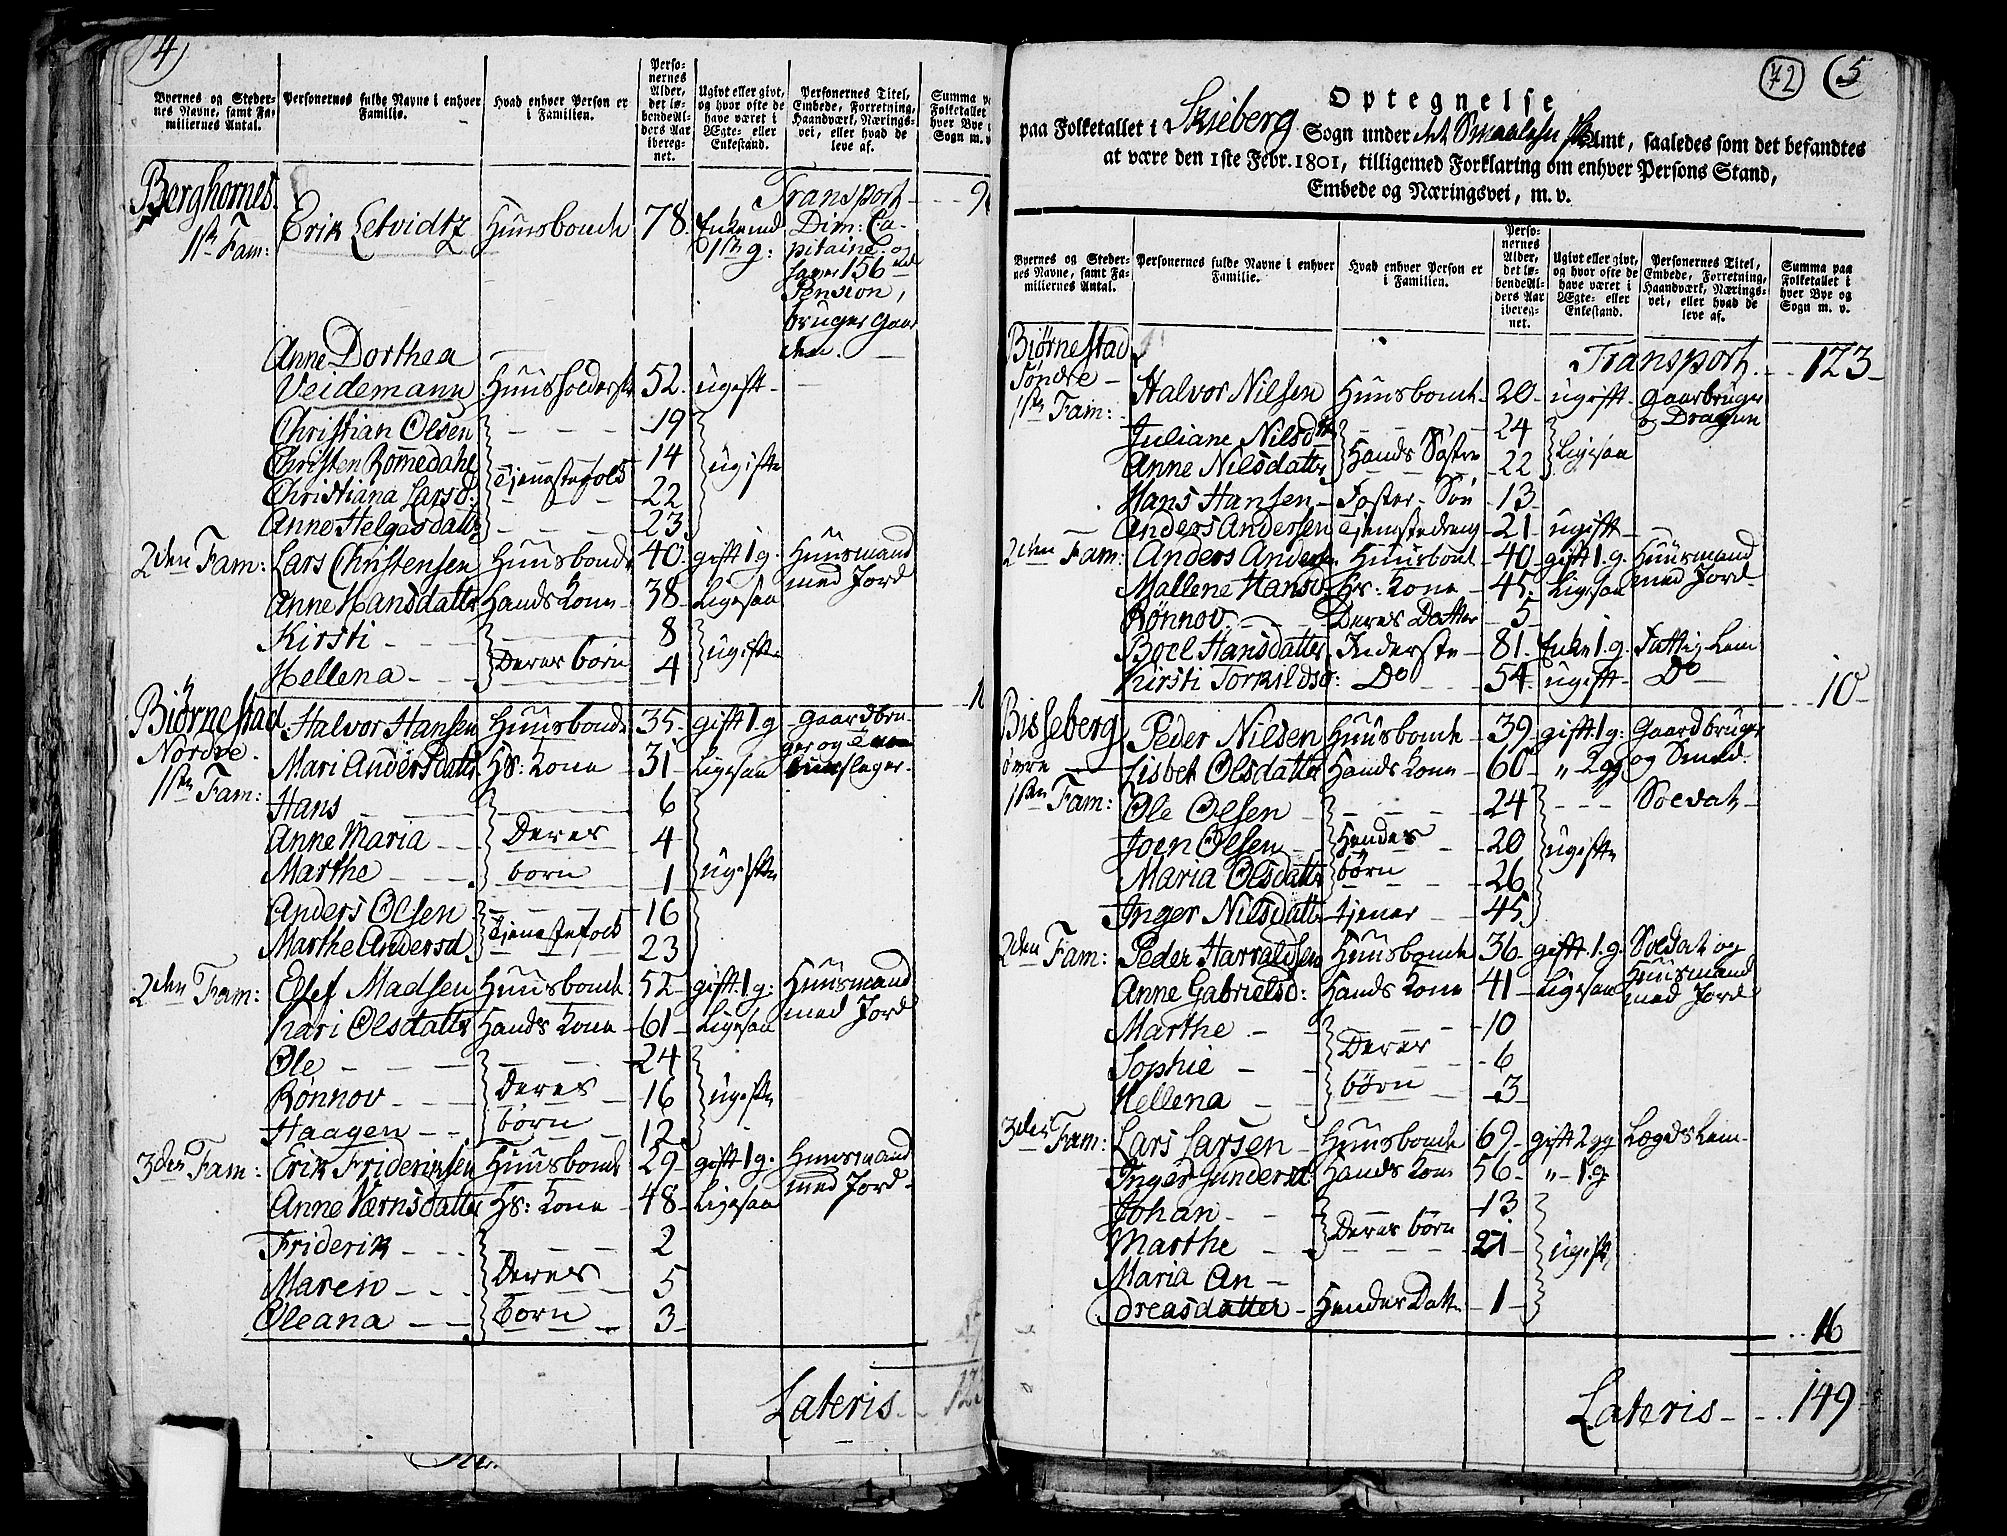 4)
Byernes og Steder-
nes Navne, samt Fa-
miliernes Antal.
Personernes fulde Navne i enhver
Familie.
Hvad enhver Person er
i Familien.
Perso-
nernes
Alder,
det lø-
bende Al-
ders Aar
iberegnet.
Ugivt eller givt,
og hvor ofte de
have været i
Ægte- eller
Enkestand.
Personernes Titel,
Embede, Forretning,
Haandværk, Nærings-
vei, eller hvad de
leve af.
Summa
Folketallet
hver Bye
Sogn m. v.
Berghornes. Transport
1ste Fam: Erik Letvidtz Huusbonde 78. Enkemd 1ste g: Dim: Ca-
pitaine og
156 rd
Pension,
bruger Gaar
den.
Anne Dorthea
Veidemann Huusholderske 52. ugift
Christian Olsen 19
Christen Romedahl 14
Tjenestefolk ugifte
Christiana Larsd: 22
Anne Helgesdatter 23
2den Fam: Lars Christensen Huusbonde 40. gift 1 g. Huusmand
Anne Hansdatter Hands Kone 38 Ligesaa med Jord
Kirsti 8
Deres børn ugifte
Hellena 4
Biørnestad Halvor Hansen Huusbonde 35. gift 1 g Gaardbru-
Nordre. Mari Andersdatter Hs: Kone 31 Ligesaa
1ste Fam: Hans 6
Anne Maria Deres 4
Marthe børn 1 ugifte
Anders Olsen 16
Tjenestefolk
Marthe Andersd. 23
2den Fam: Elef Madsen Huusbonde 52 gift 1 g: Huusmand
Kari Olsdatter Hands Kone 61 Ligesaa med Jord
Ole 24
Rønnov Deres 16 ugifte
Haagen børn 12
3den Fam: Erik Frideriksen Huusbonde 29 gift 1 g. Huusmand
Anne Værnsdatter Hs: Kone 48 Ligesaa med Jord
Friderik 2
Maren Deres 5
Oleana børn 3
Lateris
72 (5
Optegnelse
paa Folketallet i Skieberg Sogn under Smaalehn Amt, saaledes som det befandtes
at være den 1ste Febr. 1801, tilligemed Forklaring om enhver Persons Stand,
Embede og Næringsvei, m. v.
Byernes og Steder-
nes Navne, samt Fa-
miliernes Antal.
Personernes fulde Navne i enhver
Familie.
Hvad enhver Person er
i Familien.
Perso-
nernes
Alder,
det lø-
bende Al-
ders Aar
ibereg-
net.
Ugivt eller givt,
og hvor ofte de
have været i
Ægte- eller
Enkestand.
Personernes Titel,
Embede, Forretning,
Haandværk, Nærings-
vei, eller hvad de
leve af.
Summa paa
Folketallet i
hver Bye og
Sogn m. v.
Biørnestad Transport 123
Søndre Halvor Nilsen Huusbonde 20 ugift Gaarbruger
1ste Fam: og Dragun
Juliane Nilsdtr 24
Hands Søstre Ligesaa
Anne Nilsdatter 22
Hans Hansen Foster-Søn 13
Anders Andersen Tjenestedreng 21 ugift
2den Fam: Anders Andersen Huusbond 40 gift 1. g. Huusmand
Mallene Hansd Hs: Kone 45. Ligesaa med Jord
Rønnov Deres Datter 5
Boel Hansdatter Inderste 81. Enke 1. g. Fattig Lem
Kirsti Torkildsd: Do 54 ugift Do 10
Bisseberg Peder Nielsen Huusbonde 39 gift 1. g: Gaardbruger
øvre Lisbet Olsdatter Hands Kone 60 " 2 gg og Smed.
1ste Fam: Ole Olsen 24 Soldat
Joen Olsen Hendes 20 ugifte
Maria Olsdatter børn 26
Inger Nilsdatter tjener 45
2den Fam: Peder Harraldsen Huusbonde 36 gift 1. g. Soldat og
Huusmand
Anne Gabrielsd: Hands Kone 41 Ligesaa med Jord
Marthe 10
Sophie Deres 6
Hellena børn 3
3den Fam: Lars Larsen Huusbonde 69 gift 2 gg Lægds Lem
Inger Gundersd: Hands Kone 56 " 1 g
Johan 13
Deres børn
Marthe 21 ugifte
Maria An
dreasdatter Hendes Datter 1
16
Lateris 149